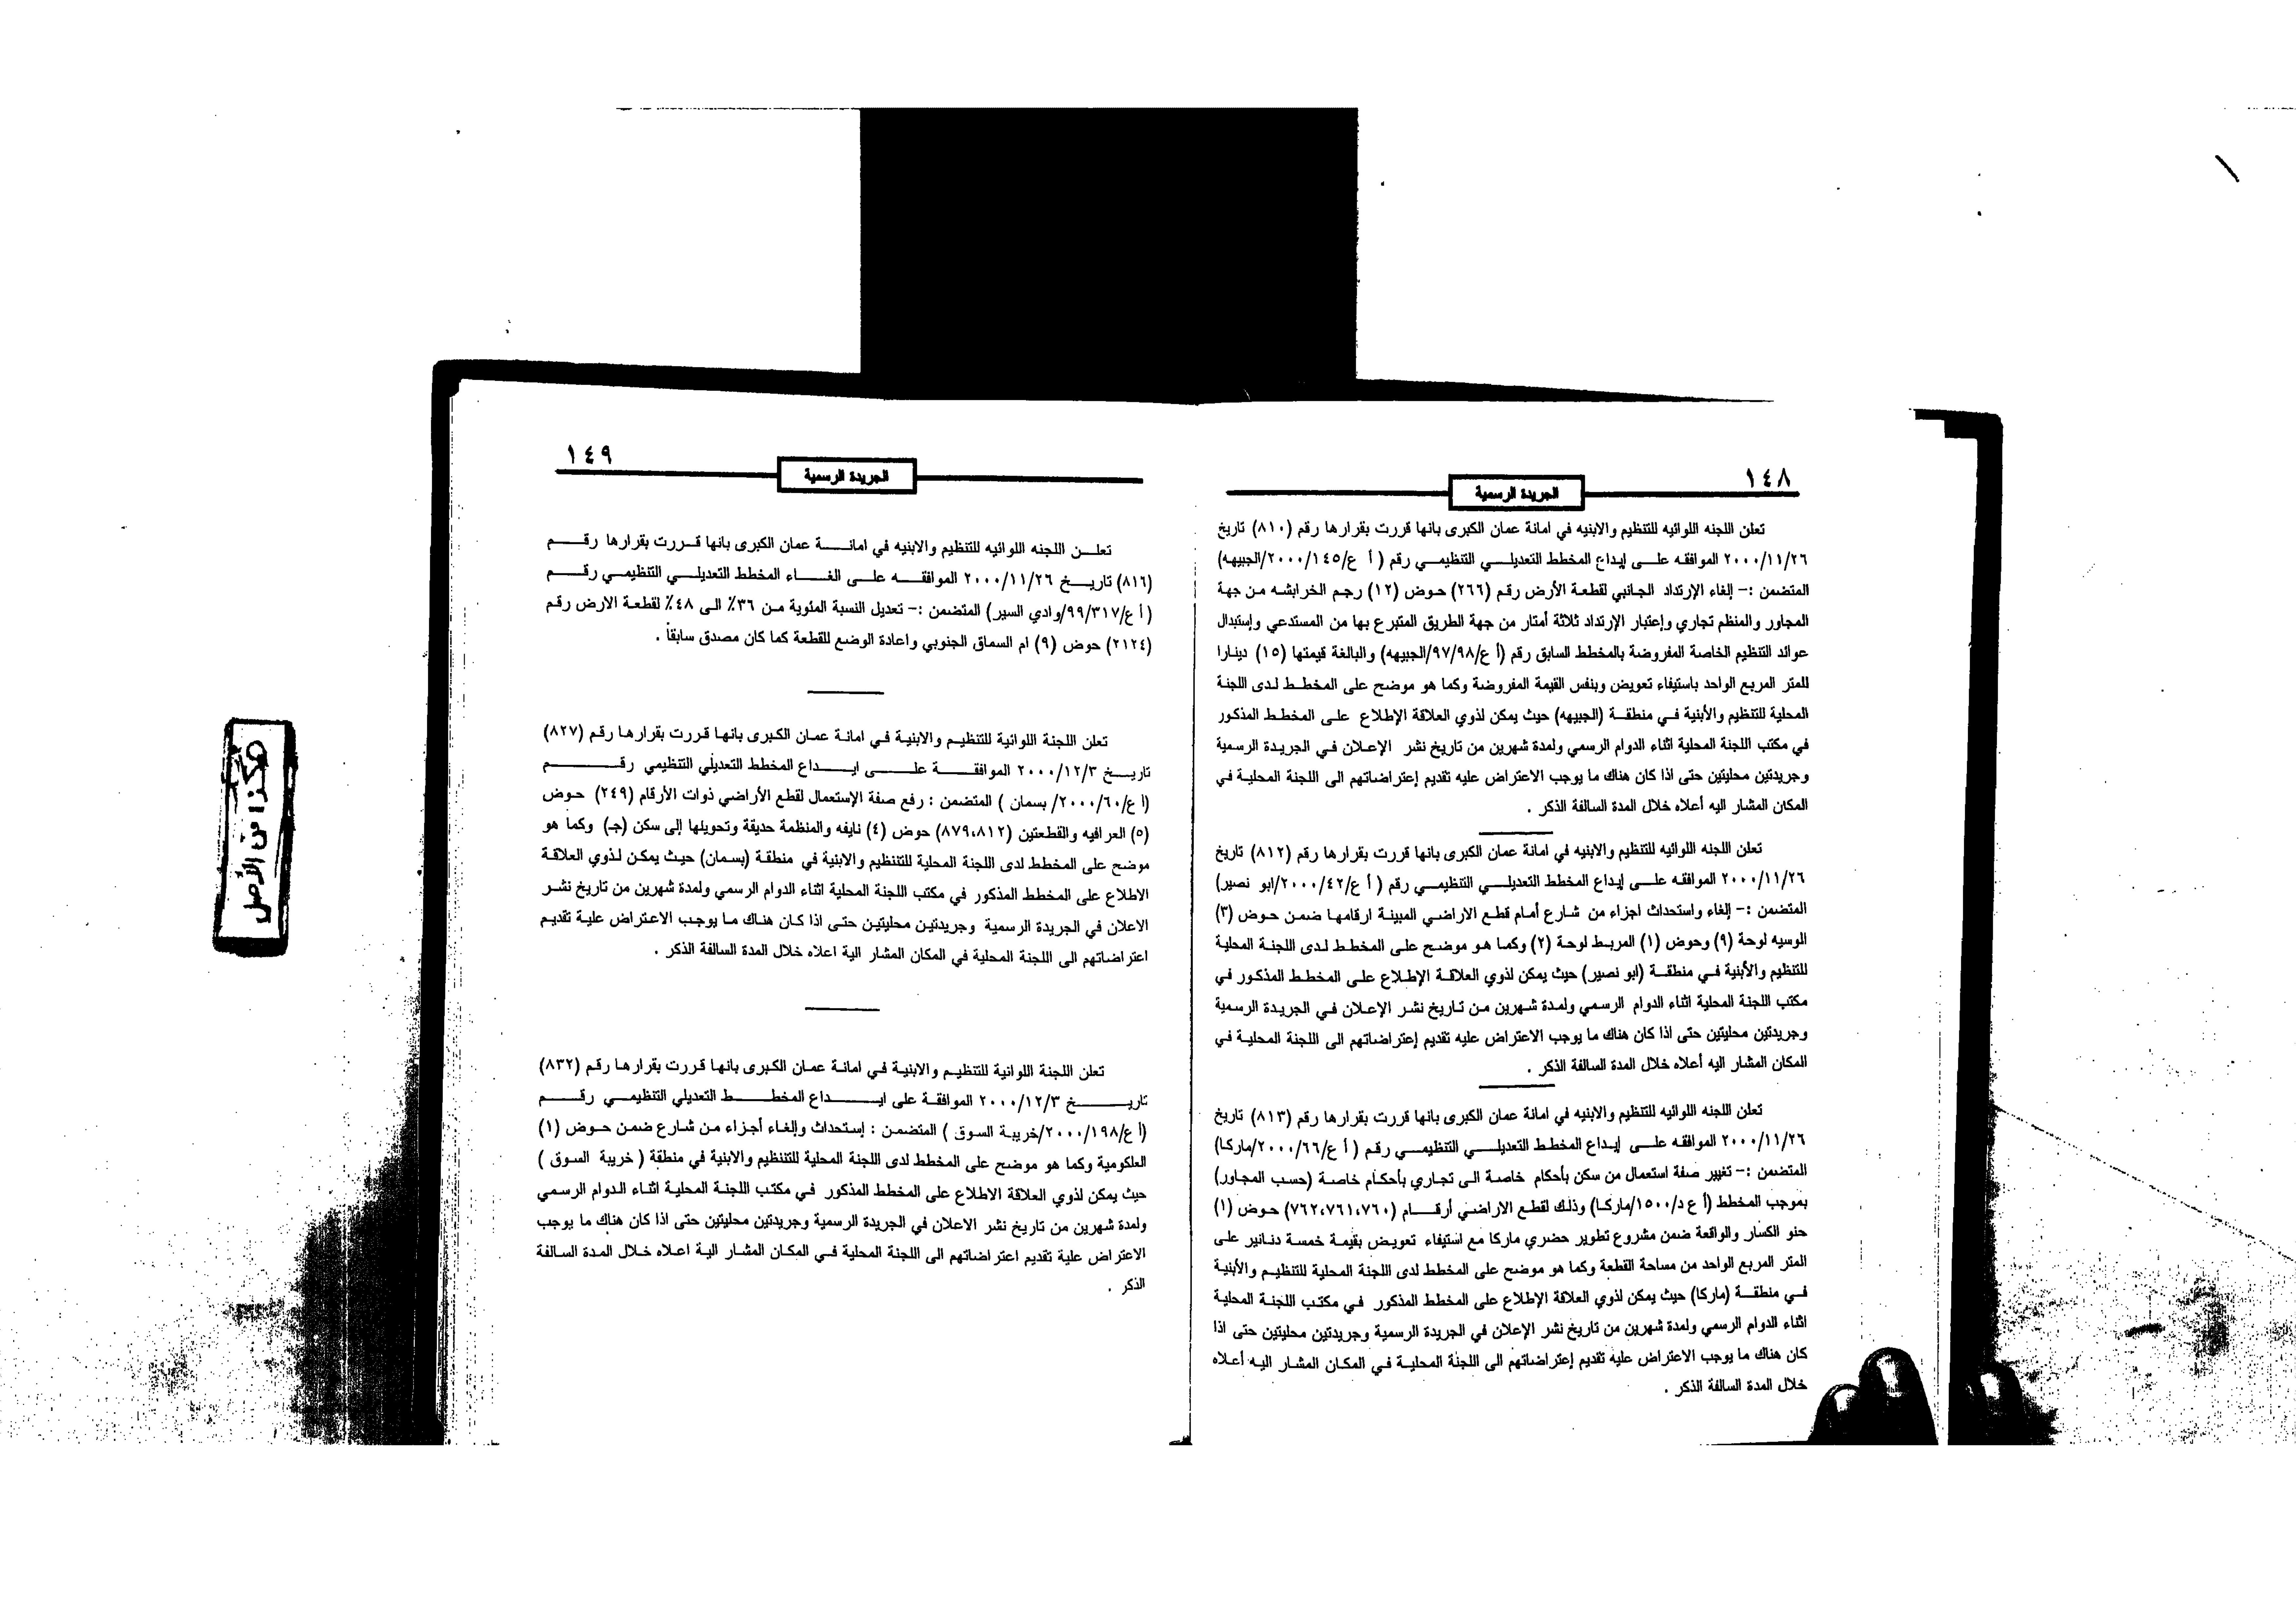 ١٤٨
الجريدة الرسمية
تعلن اللجنه اللوائيه للتنظيم والابنيه في امانة عمان الكبرى بانها قررت بقرارها رقم (٨١٠) تاريخ
٢٠٠٠/١١/٢٦ الموافقه على إيداع المخطط التعديلي التنظيمي رقم ( أ ع/١٤٥/٢٠٠٠/الجبيهه)
المتضمن :- إلغاء الإرتداد الجانبي لقطعة الأرض رقم (٢٦٦) حوض (١٢) رجم الخرابشه من جهة
المجاور والمنظم تجاري وإعتبار الإرتداد ثلاثة أمتار من جهة الطريق المتبرع بها من المستدعي وإستبدال
عوائد التنظيم الخاصة المفروضة بالمخطط السابق رقم (أ ع/٩٧/٩٨/الجبيهه) والبالغة قيمتها (١٥) دينارا
للمتر المربع الواحد باستيفاء تعويض وبنفس القيمة المفروضة وكما هو موضح على المخطط لدى اللجنة
المحلية للتنظيم والأبنية في منطقة (الجبيهه) حيث يمكن لذوي العلاقة الإطلاع على المخطط المذكور
في مكتب اللجنة المحلية اثناء الدوام الرسمي ولمدة شهرين من تاريخ نشر الإعلان في الجريدة الرسمية
وجريدتين محليتين حتى اذا كان هناك ما يوجب الاعتراض عليه تقديم إعتراضاتهم الى اللجنة المحلية في
المكان المشار اليه أعلاه خلال المدة السالفة الذكر .
تعلن اللجنه اللوائيه للتنظيم والابنيه في امانة عمان الكبرى بانها قررت بقرارها رقم (٨١٢) تاريخ
٢٠٠٠/١١/٢٦ الموافقه على إيداع المخطط التعديلي التنظيمي رقم ( أ ع/٤٢/٢٠٠٠/ابو نصير)
المتضمن :- إلغاء واستحداث اجزاء من شارع أمام قطع الاراضي المبينة ارقامها ضمن حوض (٣)
الوسيه لوحة (٩) وحوض (١) المربط لوحة (٢) وكما هو موضح على المخطط لدى اللجنة المحلية
للتنظيم والأبنية في منطقة (ابو نصير) حيث يمكن لذوي العلاقة الإطلاع على المخطط المذكور في
مكتب اللجنة المحلية اثناء الدوام الرسمي ولمدة شهرين من تاريخ نشر الإعلان في الجريدة الرسمية
وجريدتين محليتين حتى اذا كان هناك ما يوجب الاعتراض عليه تقديم إعتراضاتهم الى اللجنة المحلية في
المكان المشار اليه أعلاه خلال المدة السالفة الذكر .
تعلن اللجنه اللوائيه للتنظيم والابنيه في امانة عمان الكبرى بانها قررت بقرارها رقم (٨١٣) تاريخ
٢٠٠٠/١١/٢٦ الموافقه على إيداع المخطط التعديلي التنظيمي رقم ( أ ع/٦٦/٢٠٠٠/ماركا)
المتضمن :- تغيير صفة استعمال من سكن بأحكام خاصة الى تجاري بأحكام خاصة (حسب المجاور)
بموجب المخطط (أ ع د/١٥٠٠/ماركا) وذلك لقطع الاراضي أرقام (٧٦٢،٧٦١،٧٦٠) حوض (١)
حنو الكسار والواقعة ضمن مشروع تطوير حضري ماركا مع استيفاء تعويض بقيمة خمسة دنانير على
المتر المربع الواحد من مساحة القطعة وكما هو موضح على المخطط لدى اللجنة المحلية للتنظيم والأبنية
في منطقة (ماركا) حيث يمكن لذوي العلاقة الإطلاع على المخطط المذكور في مكتب اللجنة المحلية
اثناء الدوام الرسمي ولمدة شهرين من تاريخ نشر الإعلان في الجريدة الرسمية وجريدتين محليتين حتى اذا
كان هناك ما يوجب الاعتراض عليه تقديم إعتراضاتهم الى اللجنة المحلية في المكان المشار اليه أعلاه
خلال المدة السالفة الذكر .
١٤٩
الجريدة الرسمية
تعلن اللجنه اللوائيه للتنظيم والابنيه في امانة عمان الكبرى بانها قررت بقرارها رقم
(٨١٦) تاريخ ٢٠٠٠/١١/٢٦ الموافقه على الغاء المخطط التعديلي التنظيمي رقم
( أ ع/٩٩/٣١٧/وادي السير) المتضمن :- تعديل النسبة المئوية من ٣٦٪ الى ٤٨٪ لقطعة الارض رقم
(٢١٢٤) حوض (٩) ام السماق الجنوبي واعادة الوضع للقطعة كما كان مصدق سابقاً .
تعلن اللجنة اللوائية للتنظيم والابنية في امانة عمان الكبرى بانها قررت بقرارها رقم (٨٢٧)
تاريخ ٢٠٠٠/١٢/٣ الموافقة على ايداع المخطط التعديلي التنظيمي رقم
(ا ع/٢٠٠٠/٦٠/ بسمان ) المتضمن : رفع صفة الإستعمال لقطع الأراضي ذوات الأرقام (٢٤٩) حوض
(٥) العرافيه والقطعتين (٨٧٩،٨١٢) حوض (٤) نايفه والمنظمة حديقة وتحويلها إلى سكن (جـ) وكما هو
موضح على المخطط لدى اللجنة المحلية للتنظيم والابنية في منطقة (بسمان) حيث يمكن لذوي العلاقة
الاطلاع على المخطط المذكور في مكتب اللجنة المحلية اثناء الدوام الرسمي ولمدة شهرين من تاريخ نشر
الاعلان في الجريدة الرسمية وجريدتين محليتين حتى اذا كان هناك ما يوجب الاعتراض علية تقديم
اعتراضاتهم الى اللجنة المحلية في المكان المشار الية اعلاه خلال المدة السالفة الذكر .
تعلن اللجنة اللوائية للتنظيم والابنية في امانة عمان الكبرى بانها قررت بقرارها رقم (٨٣٢)
تاريخ ٢٠٠٠/١٢/٣ الموافقة على ايداع المخطط التعديلي التنظيمي رقم
(أ ع/٢٠٠٠/١٩٨/خريبة السوق ) المتضمن : إستحداث وإلغاء أجزاء من شارع ضمن حوض (١)
العلكومية وكما هو موضح على المخطط لدى اللجنة المحلية للتنظيم والابنية في منطقة ( خريبة السوق )
حيث يمكن لذوي العلاقة الاطلاع على المخطط المذكور في مكتب اللجنة المحلية اثناء الدوام الرسمي
ولمدة شهرين من تاريخ نشر الاعلان في الجريدة الرسمية وجريدتين محليتين حتى اذا كان هناك ما يوجب
الاعتراض علية تقديم اعتراضاتهم الى اللجنة المحلية في المكان المشار الية اعلاه خلال المدة السالفة
الذكر .
هكذا من الأصل